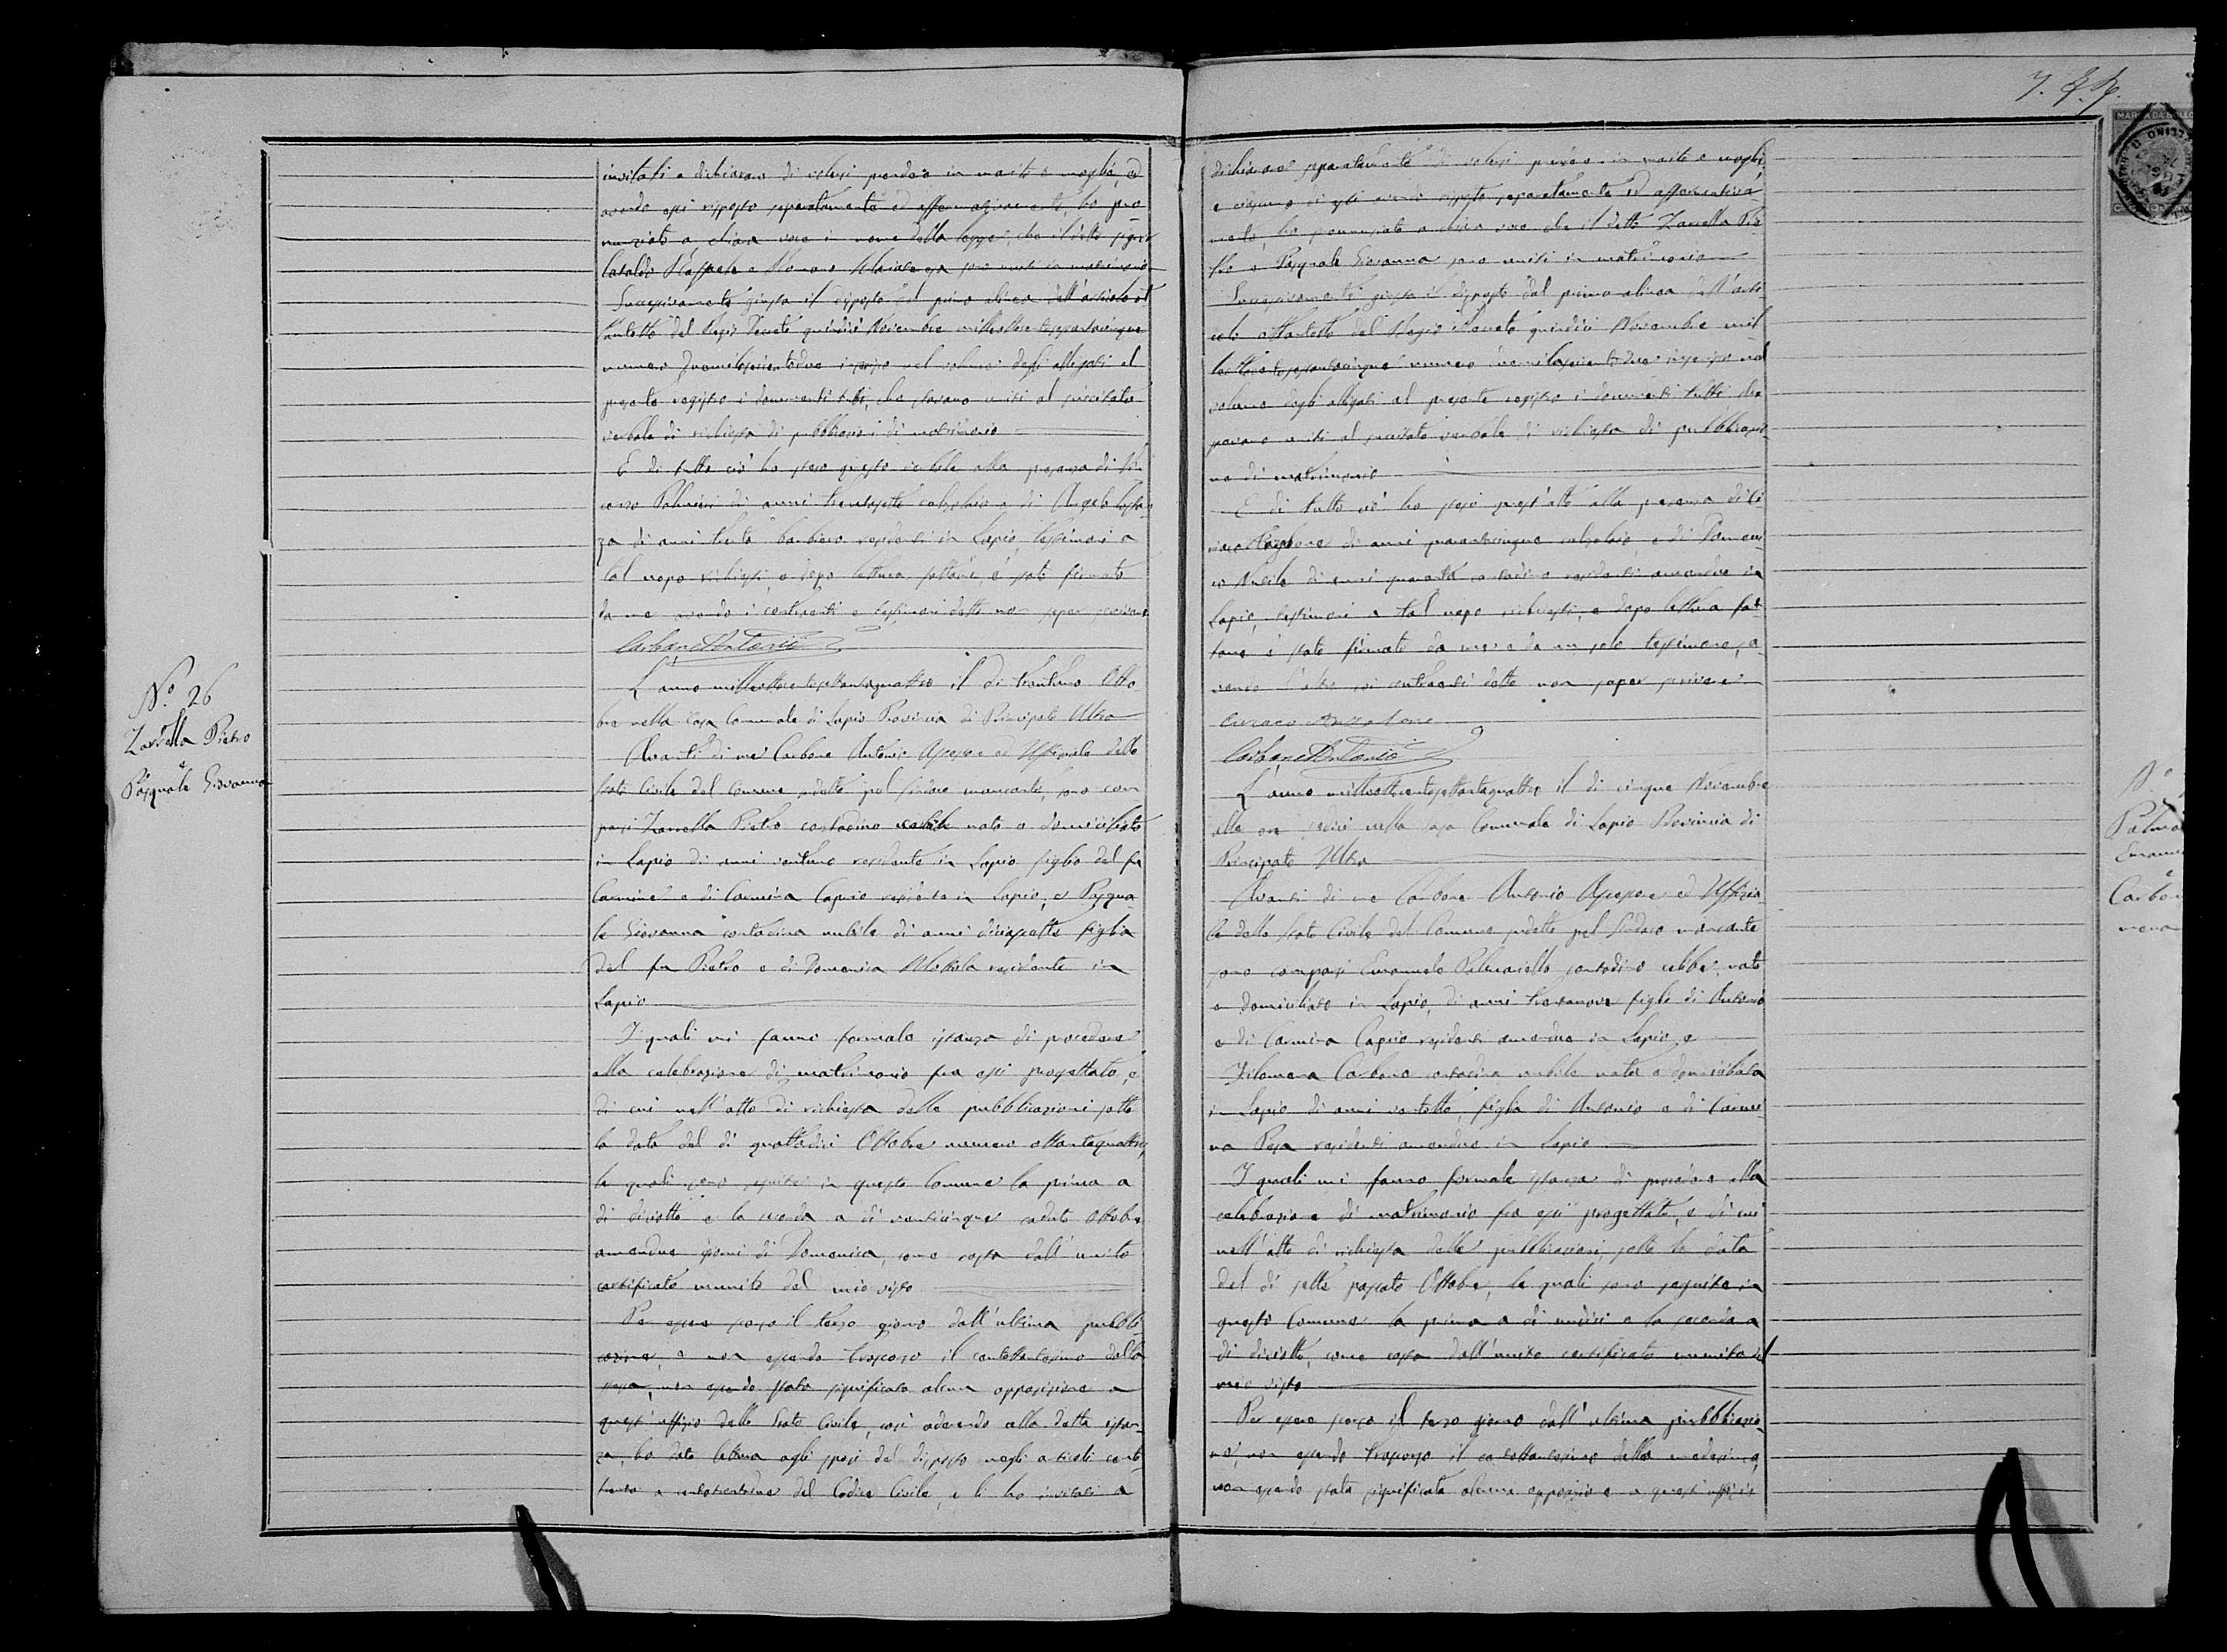 invitati a dichiarare di volersi prendere in marito e moglie, ed
avendo essi risposto separatamente ed affermativamente, ho pro
nunziato a chiara voce in nome della legge, che il detto signor
Cataldo Raffaele e sono uniti in matrimonio
Successivamente giusta il disposto del primo alinea dell'articolo ot
tantotto del Regio Decreto quindici Novembre milleottocentosessantacinque
numero duemilaseicentodue inserisco nel volume degli allegati al
presente registro i documenti tutti, che stavano uniti al succitato
verbale di richiesta di pubblicazioni di matrimonio
E di tutto ciò ho steso questo verbale alla presenza di
di anni trentasette calzolaio e di Angelo
di anni trenta barbiere residenti in Lapio, testimoni a
tal uopo richiesti e dopo lettura fattane, è stato firmato
da me avendo i contraenti e testimoni detto non saper scrivere
Carbone Antonio
L'anno milleottocentosettantaquattro il dì trentuno Otto
bre nella Casa Comunale di Lapio Provincia di Principato Ultra
Avanti di me Carbone Antonio Assessore ed Uffiziale dello
Stato Civile del Comune sudetto pel Sindaco mancante, sono com
parsi Zarrella Pietro contadino celibe nato e domiciliato
in Lapio di anni ventuno residente in Lapio figlio del fu
Carmine e di Carmina Caprio residente in Lapio, e Pasqua
le Giovanna contadina nubile di anni diciasette figlia
del fu Pietro e di Domenica residente in
Lapio
I quali mi fanno formale istanza di procedere
alla celebrazione di matrimonio fra essi progettato, e
di cui nell'atto di richiesta delle pubblicazioni sotto
la data del dì quattordici Ottobre numero ottantaquattro,
le quali sono seguite in questo Comune la prima a
dì diciotto e la seconda a dì venticinque caduto Ottobre
amendue giorni di Domenica, come costa dall'unito
certificato munito del mio visto
Per essere scorso il terzo giorno dall'ultima pubbli
cazione, e non essendo trascorso il centottantesimo dalla
stessa, non essendo stata significata alcuna opposizione a
quest'uffizio dello Stato Civile, così aderendo alla detta istan
za, ho dato lettura agli sposi del disposto negli articoli cento
trenta e centotrentuno del Codice Civile, e li ho invitati a
Nº 26
Zarrella Pietro
e
Pasquale Giovanna
dichiarare separatamente di volersi prendere in marito e moglie,
e ciascuno di essi avendo risposto separatamente ed affermativa
mente, ho pronunziato a chiara voce che il detto Zarrella Pie
tro e Pasquale Giovanna sono uniti in matrimonio
Successivamente giusta il disposto del primo alinea dell'arti
colo ottantotto del Regio Decreto quindici Novembre mil
leottocentosessantacinque numero duemilaseicentodue inserisco nel
volume degli allegati al presente registro i documenti tutti che
stavano uniti al succitato verbale di richiesta di pubblicazio
ne di matrimonio
E di tutto ciò ho steso quest'atto alla presenza di Ci
riaco di anni quarantacinque calzolaio, e di Domeni
co di anni quaranta contadino residenti amendue in
Lapio, testimoni a tal uopo richiesti, e dopo lettura fat
tane è stato firmato da me e da un solo testimone, a
vendo l'altro coi contraenti detto non saper scrivere
Ciriaco
Carbone Antonio
L'anno milleottocentosettantaquattro il dì cinque Novembre
alle ore sedici nella Casa Comunale di Lapio Provincia di
Principato Ultra
Avanti di me Carbone Antonio Assessore ed Uffizia
le dello Stato Civile del Comune sudetto pel Sindaco mancante
sono comparsi Emanuele Palmariello contadino celibe, nato
e domiciliato in Lapio, di anni trentanove figlio di Antonio
e di Carmina Caprio residenti amendue in Lapio e
Filomena Carbone contadina nubile nata e domiciliata
in Lapio di anni ventotto, figlia di Antonio e di Carmi
na residenti amendue in Lapio
I quali mi fanno formale istanza di procedere alla
celebrazione di matrimonio fra essi progettato, e di cui
nell'atto di richiesta delle pubblicazioni sotto la data
del dì sette passato Ottobre, le quali sono seguite in
questo Comune la prima a dì undici e la seconda a
dì diciotto, come costa dall'unito certificato munito del
mio visto
Per essere scorso il terzo giorno dall'ultima pubblicazio
ne, non essendo trascorso il centottantesimo dalla medesima,
non essendo stata significata alcuna opposizione a quest'uffizio